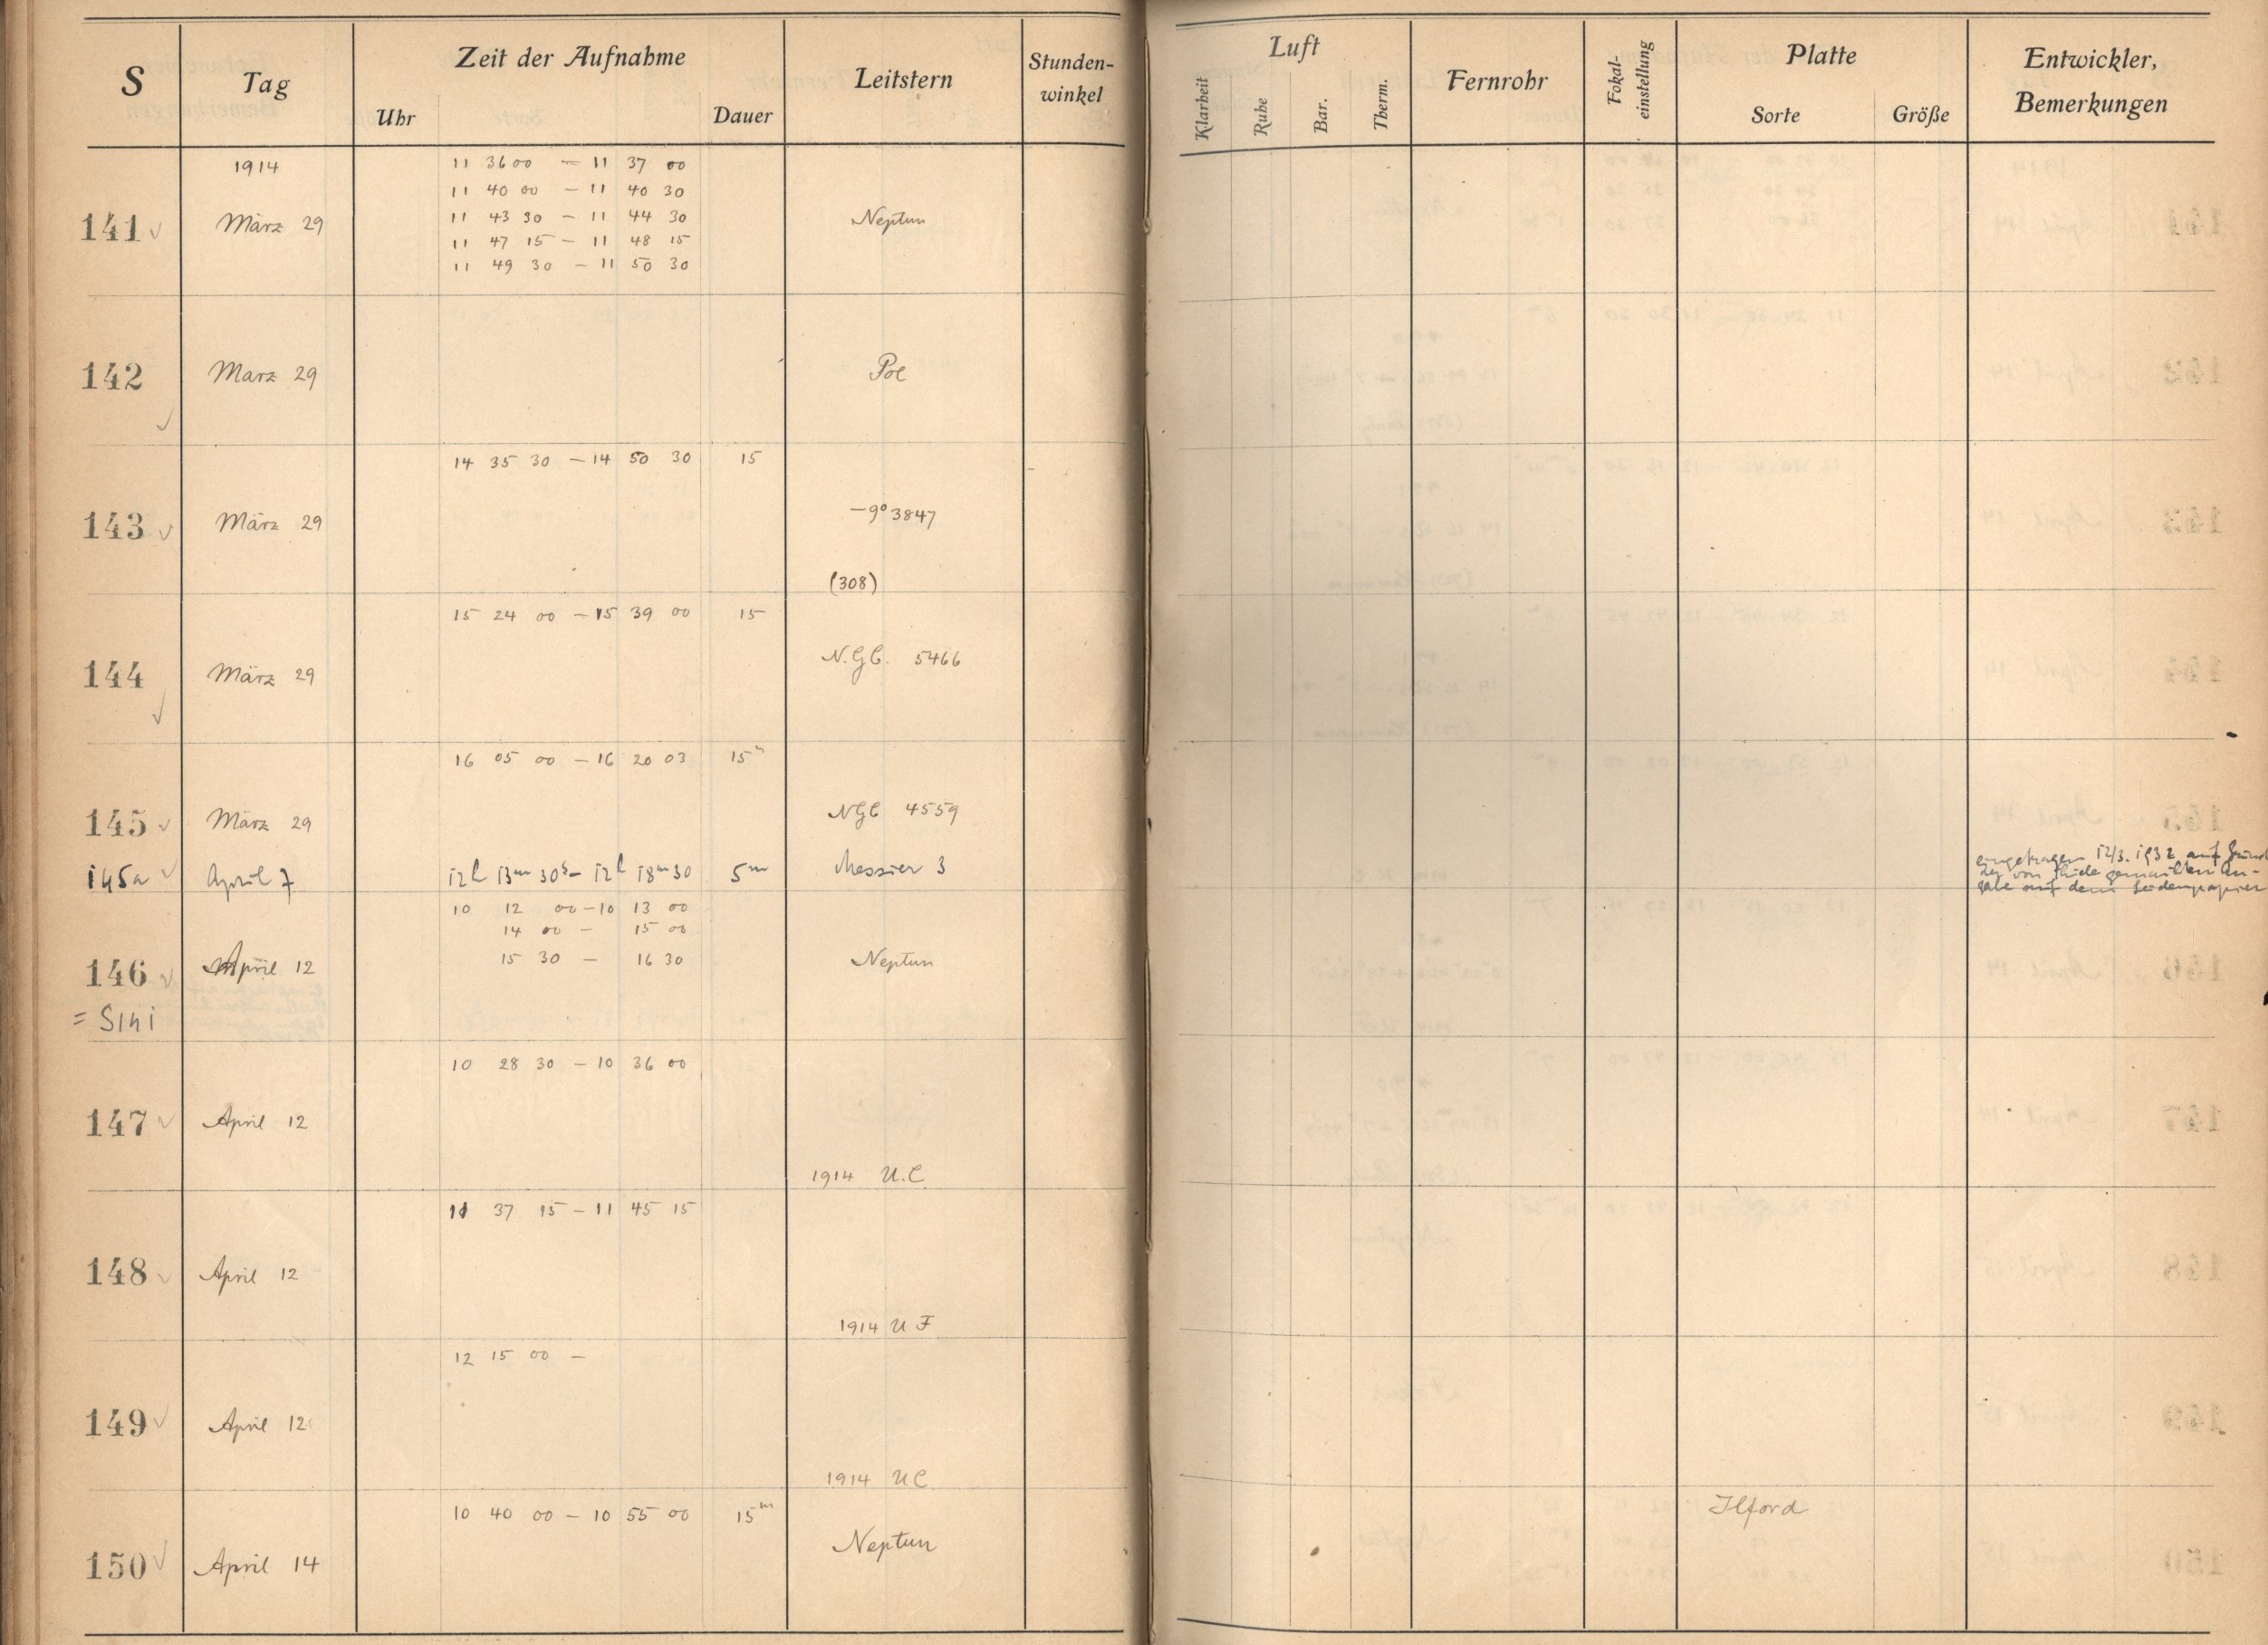 S Tag Zeit der Aufnahme Leitstern Stunden-winkel Luft Fernrohr Fokal-einstellung Platte Entwickler, Bemerkungen
Uhr Dauer Klarheit Ruhe Bar. Therm. Sorte Größe
1914 11 36 00 — 11 37 00
11 40 00 — 11 40 30
141 März 29 11 43 30 — 11 44 30 Neptun
11 47 15 — 11 48 15
11 49 30 — 11 50 30
142 Marz 29 Pol
14 35 30 — 14 50 30 15
143 März 29 —9° 3847
(308)
15 24 00 — 15 39 00 15
144 März 29 N.G.C. 5466
16 05 00 — 16 20 03 15m
145 März 29 NGC 4559
145a April 7 12h 13m 30s — 12h 18m 30 5m Messier 3 eingetragen 12/3. 1932 auf Grund
der von Thiele gemachten An-
gabe auf dem Seidenpapier
10 12 00 — 10 13 00
14 00 — 15 00
146 April 12 15 30 — 16 30 Neptun
= S141
10 28 30 — 10 36 00
147 April 12
1914 U.C
11 37 15 — 11 45 15
148 April 12
1914 U F
12 15 00 —
149 April 12
1914 UC
10 40 00 — 10 55 00 15m Ilford
150 April 14 Neptun